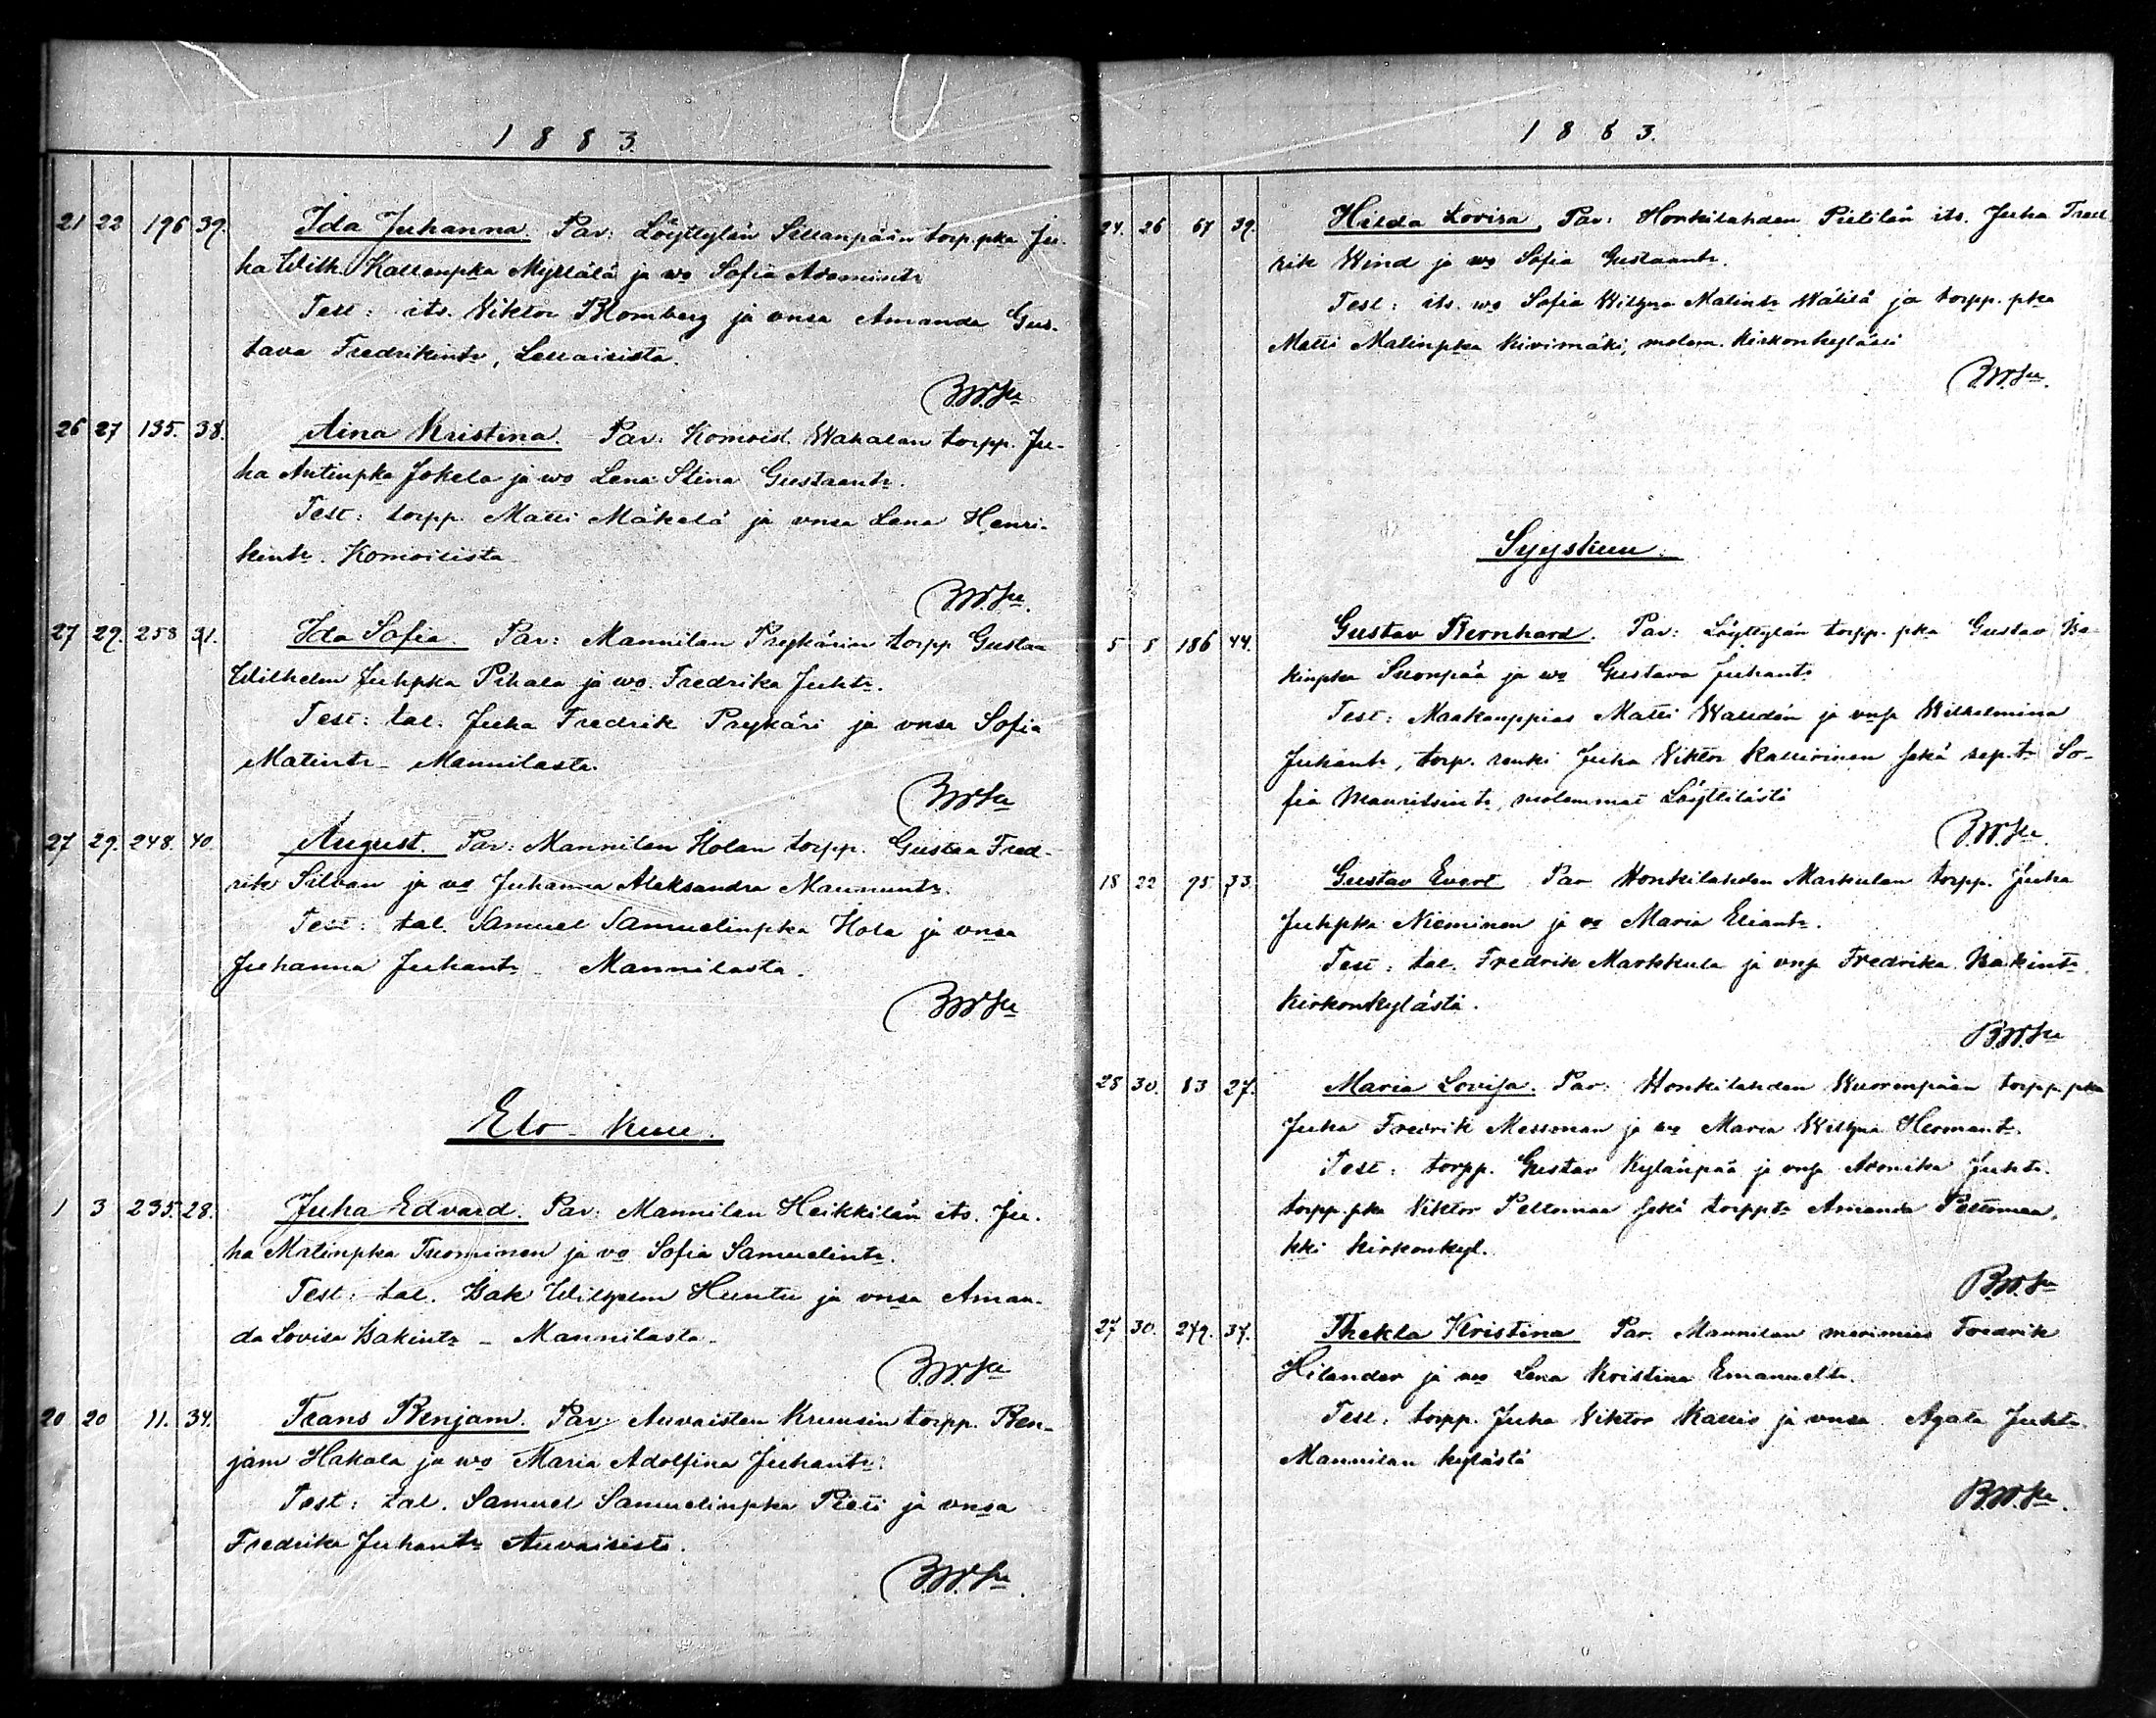 1883.
21 22 196 39. Ida Juhanna. Par: Löyttylän Sillanpään torp.pka Ju-
ha Wilh. Kallenpka Myllälä ja wo Sofia Adamintr
Test: its. Viktor Blomberg ja vnsa Amanda Gus-
tava Fredrikintr, Lellaisista.
26 27 135. 38. Aina Kristina. Par: Komoist. Wahalan torpp. Ju-
ha Antinpka Jokela ja wo Lena Stina Gustaantr.
Test: torpp. Matti Mäkelä ja vnsa Lena Henri-
kintr. Komoisista
27 29. 258 31. Ida Sofia. Par: Mannilan Preykärin torpp Gustaa
Wilhelm Juhpka Pihala ja wo. Fredrika Juhtr.
Test: tal. Juha Fredrik Preykäri ja vnsa Sofia
Matintr - Mannilasta.
27 29. 248. 40. August. Par: Mannilan Holan torpp. Gustaa Fred-
rik Silvan ja vo Juhanna Aleksandra Maununtr.
Test: tal. Samuel Samuelinpka Hola ja vnsa
Juhanna Juhantr - Mannilasta.
Elo-kuu.
1 3 235. 28. Juha Edvard. Par: Mannilan Heikkilän its. Ju-
ha Matinpka Tuominen ja vo Sofia Samuelintr.
Test: tal. Isak Wilhelm Huntu ja vnsa Aman-
da Lovisa Isakintr - Mannilasta -
20 20 11. 34. Frans Benjam. Par: Auvaisten Kruusin torpp. Ben-
jam Hakala ja wo Maria Adolfina Juhantr.
Test: tal. Samuel Samuelinpka Pieti ja vnsa
Fredrika Juhantr Auvaisista.
1883.
24. 26 67 39. Hilda Lovisa, Par: Honkilahden Pietilän its. Juha Fred
rik Wind ja wo Sofia Gustaantr.
Test: its. wo Sofia Wilhna Matintr Wälilä ja torpp. pka
Matti Matinpka Kivimäki, molem. Kirkonkylästä
Syyskuu.
5 5 186 44. Gustav Bernhard. Par: Löyttylän torpp. pka Gustav Isa-
kinpka Suonpää ja wo Gustava Juhantr
Test: Maakauppias Matti Walldén ja vnsa Wilhelmina
Juhantr, torp. renki Juha Viktor Kallioinen sekä sep.tr So-
fia Mauritsintr, molemmat Löyttilästä
18 22 95 33. Gustav Evert Par Honkilahden Markulan torpp. Juha
Juhpka Nieminen ja vo Maria Eliantr.
Test: tal. Fredrik Markkula ja vnsa Fredrika Isakintr
Kirkonkylästä.
28 30. 83 27. Maria Lovisa. Par: Honkilahden Wuorenpään torpp.pka
Juha Fredrik Messman ja wo Maria Wilhna Hermantr.
Test: torpp. Gustav Kylänpää ja vnsa Juhtr.
torpp.pka Viktor Peltomaa sekä torpptr Amanda Peltomaa,
kki Kirkonkyl.
27 30. 249. 37. Thekla Kristina Par. Mannilan merimies Fredrik
Hilander ja wo Lena Kristina Emanueltr.
Test: torpp. Juha Viktor Kallio ja vnsa Agata Juhtr
Mannilan kylästä